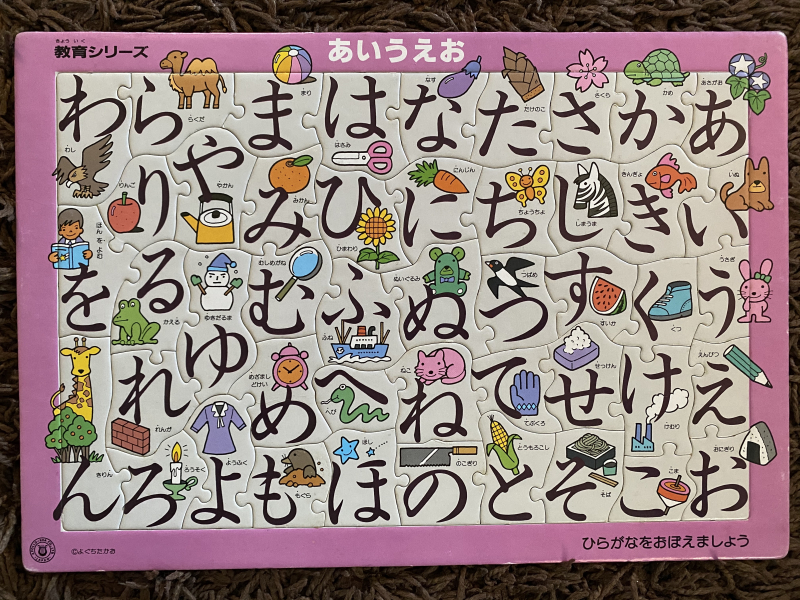 きょういく
教育シリーズ
あいうえお
あ
あさがお
い
いぬ
う
うさぎ
え
えんぴつ
お
おにぎり
か
かめ
き
きんぎょ
く
くつ
け
けむり
こ
こま
さ
さくら
し
しまうま
す
すいか
せ
せっけん
そ
そば
た
たけのこ
ち
ちょうちょ
つ
つばめ
て
てぶくろ
と
とうもろこし
な
なす
に
にんじん
ぬ
ぬいぐるみ
ね
ねこ
の
のこぎり
は
はさみ
ひ
ひまわり
ふ
ふね
へ
へび
ほ
ほし
ま
まり
み
みかん
む
むしめがね
め
めざまし
どけい
も
もぐら
や
やかん
ゆ
ゆきだるま
よ
ようふく
ら
らくだ
り
りんご
る
かえる
れ
れんが
ろ
ろうそく
わ
わし
を
ほんをよむ
ん
きりん
©よぐちたかお
ひらがなをおぼえましょう